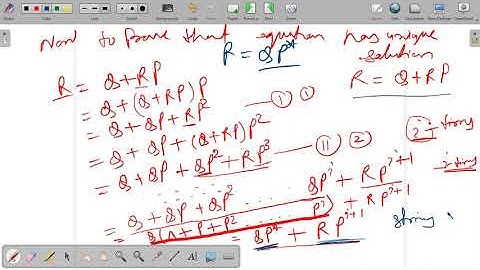 Now to prove that equation has unique solution
R = QP*
R = Q + RP
R = Q + RP
= Q + (Q + RP) P
= Q + QP + RP² — (I) (1)
= Q + QP + (Q + RP) P²
= Q + QP + QP² + RP³ — (II) (2)
(i) - times
i - times
= Q + QP + QP² ... QPⁱ + RPⁱ⁺¹
= Q(Λ + P + P² ... Pⁱ) + RPⁱ⁺¹
= QP* + RPⁱ⁺¹
string